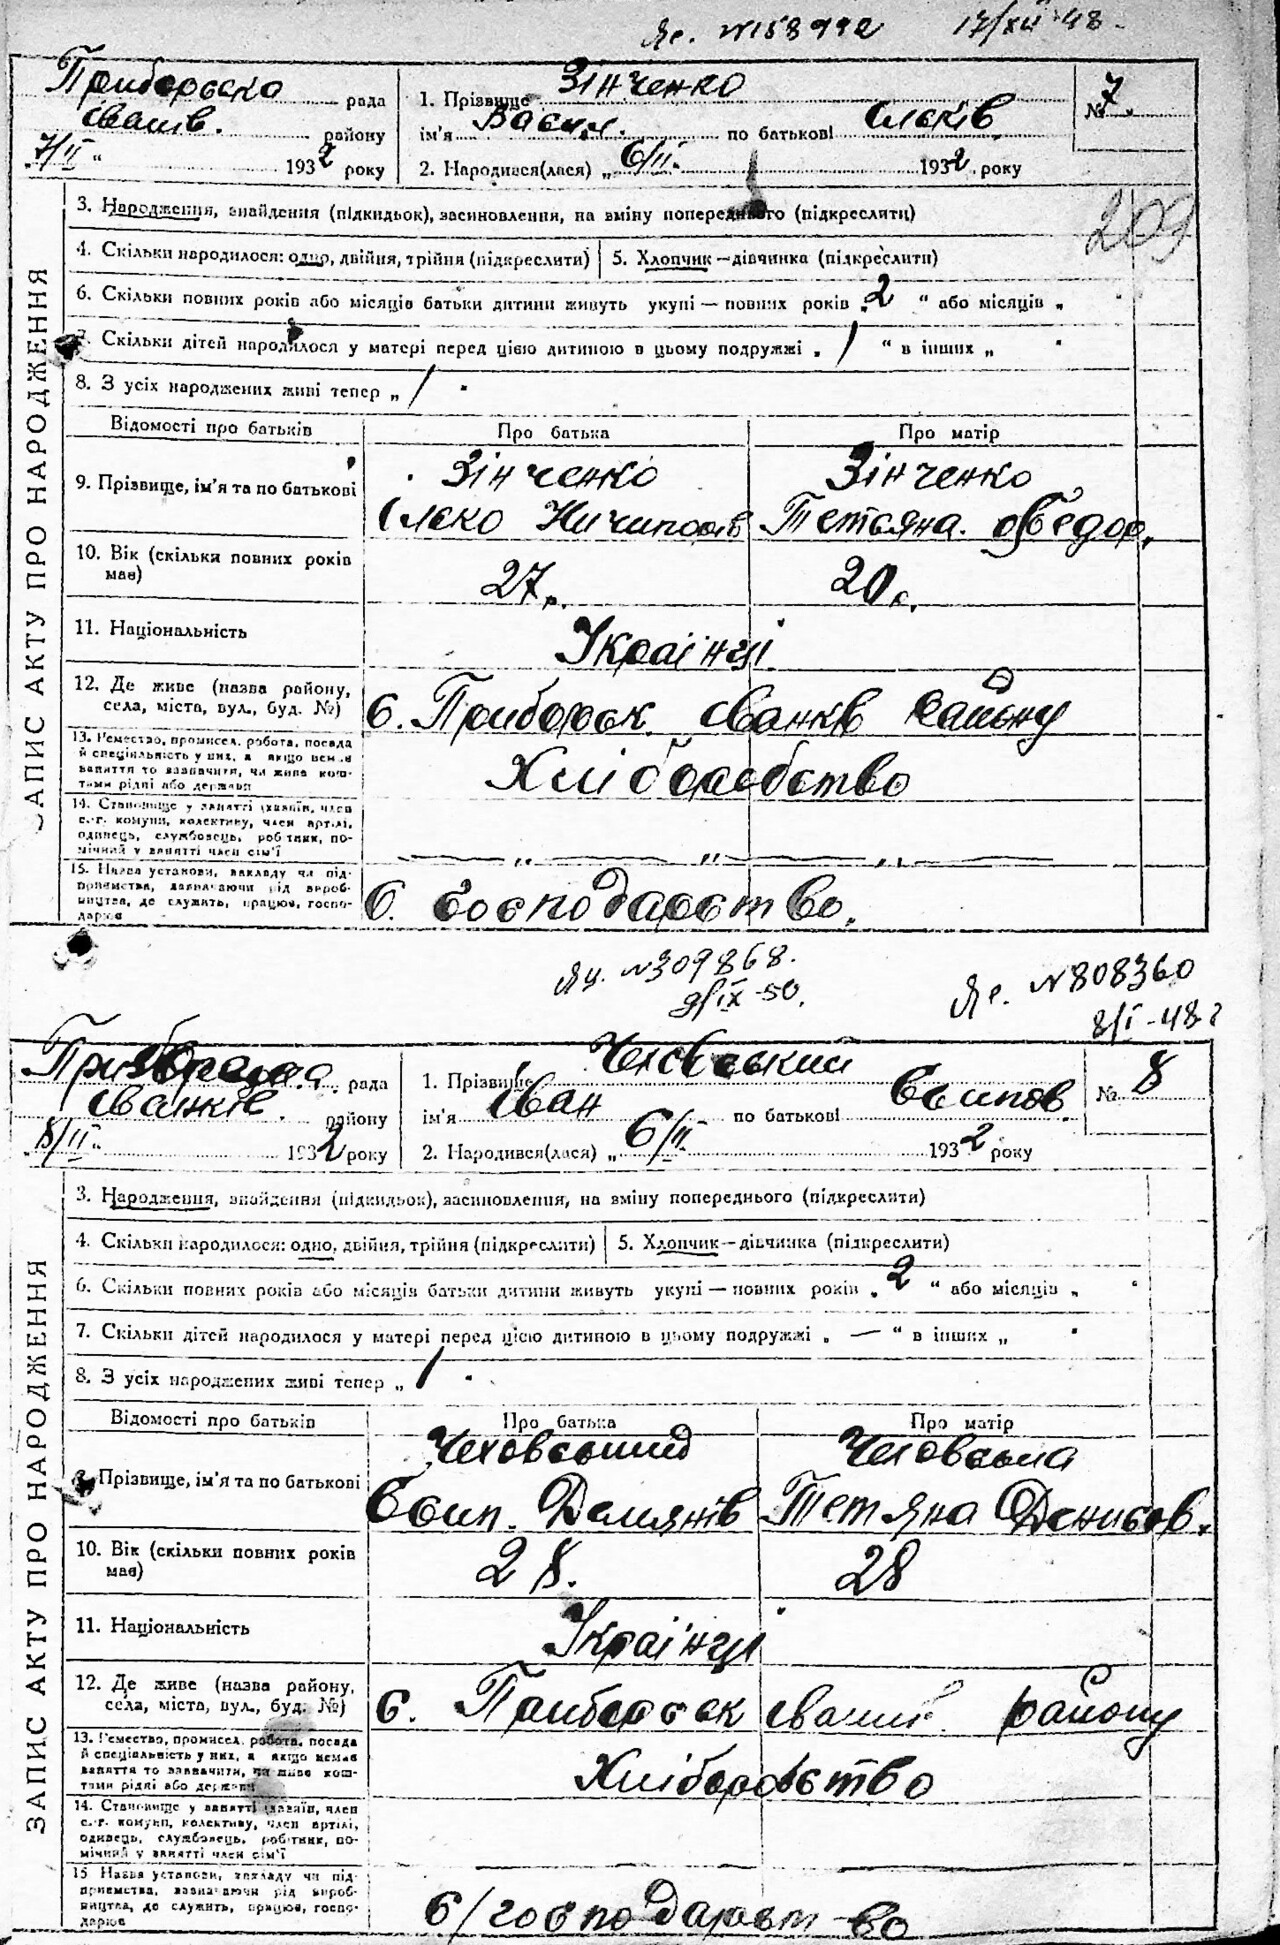 Яс. №158992 17/XII 48
Приборска рада
Іванків. району
7/II 1932 року
1. Прізвище Зінченко
ім'я Василь по батькові Олєків
2. Народився(лася) „ 6/II. 1932 року
№ 7.
209
ЗАПИС АКТУ ПРО НАРОДЖЕННЯ
3. Народження, знайдення (підкидьок), засиновлення, на зміну попереднього (підкреслити)
4. Скільки народилося: одно, двійня, трійня (підкреслити) 5. Хлопчик—дівчинка (підкреслити)
6. Скільки повних років або місяців батьки дитини живуть укупі — повних років „ 2 “ або місяців „
7. Скільки дітей народилося у матері перед цією дитиною в цьому подружжі „ 1 “ в інших „
8. З усіх народжених живі тепер „ 1
Відомості про батьків Про батька Про матір
9. Прізвище, ім'я та по батькові Зінченко Зінченко
Ничипорів Тетяна Федор.
10. Вік (скільки повних років має) 27 р. 20 р.
11. Національність Українці
12. Де живе (назва району, села, міста, вул., буд. №) с. Приборськ Іванків району
13. Ремество, промисел, робота, посада й спеціяльність у них, а якщо немає заняття то зазначити, чи живе коштами рідні або держави Хліборобство
14. Становище у занятті (хазяїн, член с.-г. комуни, колективу, член артілі, одинець, службовець, робітник, помічний у занятті член сім'ї — „ — „ — „ —
15. Назва установи, закладу чи підприємства, зазначаючи рід виробництва, де служить, працює, господарює с. господарство.
№309868. 9/IX-50.
Яс. №808360
8/I-48 г
рада
Іванків. району
8/II 1932 року
1. Прізвище Чеховський
ім'я Іван по батькові Осипов.
2. Народився(лася) „ 6/II 1932 року
№ 8
ЗАПИС АКТУ ПРО НАРОДЖЕННЯ
3. Народження, знайдення (підкидьок), засиновлення, на зміну попереднього (підкреслити)
4. Скільки народилося: одно, двійня, трійня (підкреслити) 5. Хлопчик—дівчинка (підкреслити)
6. Скільки повних років або місяців батьки дитини живуть укупі — повних років „ 2 “ або місяців „
7. Скільки дітей народилося у матері перед цією дитиною в цьому подружжі „ — “ в інших „
8. З усіх народжених живі тепер „ 1
Відомості про батьків Про батька Про матір
9. Прізвище, ім'я та по батькові Чеховський Чеховська
Осип. Демянів Тетяна Денисов.
10. Вік (скільки повних років має) 28. 28
11. Національність Українці
12. Де живе (назва району, села, міста, вул., буд. №) с. Приборськ Іванків району
13. Ремество, промисел, робота, посада й спеціяльність у них, а якщо немає заняття то зазначити, чи живе коштами рідні або держави Хліборобство
14. Становище у занятті (хазяїн, член с.-г. комуни, колективу, член артілі, одинець, службовець, робітник, помічний у занятті член сім'ї
15 Назва установи, закладу чи підприємства, зазначаючи рід виробництва, де служить, працює, господарює с/господарст-во